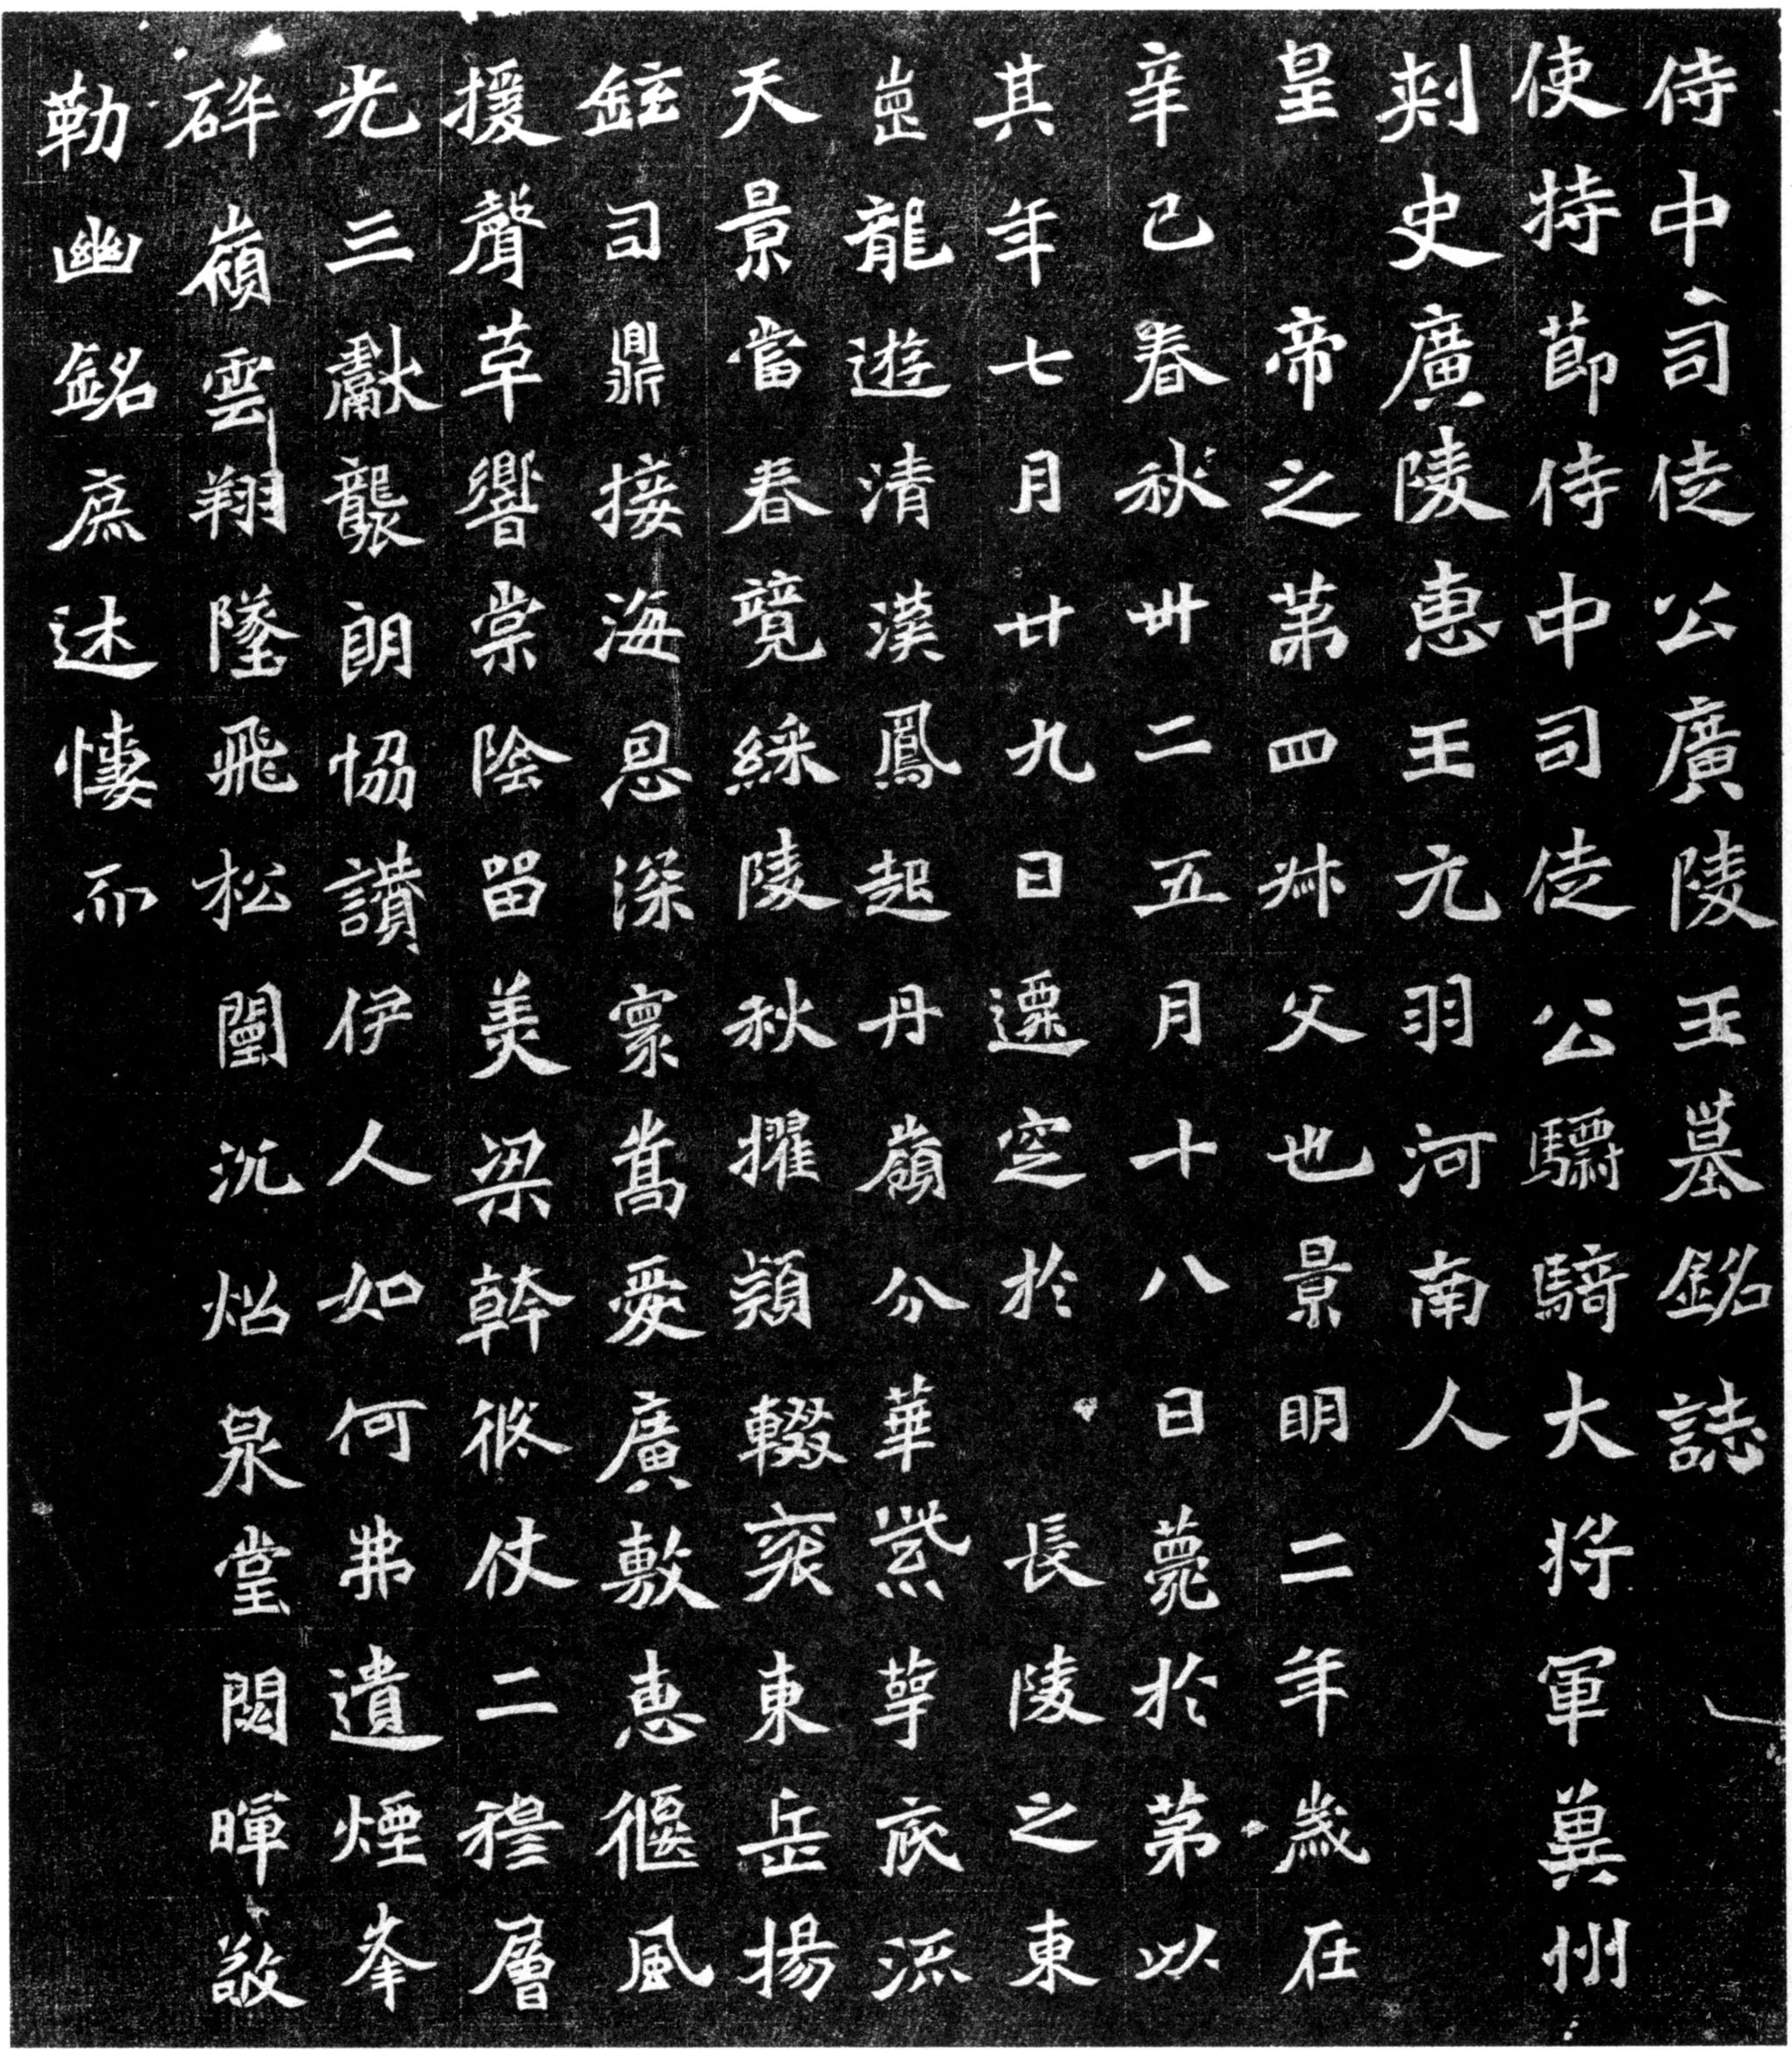 侍中司徒公廣陵王墓銘誌
使持節侍中司徒公驃騎大將軍冀州
刺史廣陵惠王元羽河南人
皇帝之第四叔父也景明二年歲在
辛巳春秋卅二五月十八日薨於第以
其年七月廿九日遷窆於長陵之東
崗龍遊清漢鳳起丹嶺分華紫萼底流
天景當春競綵陵秋擢穎輟袞東岳揚
鉉司鼎接海恩深寮舊愛廣敷惠偃風
援聲草響棠陰留美梁幹徽仗二穆層
光三獻襲朗協讚伊人如何弗遺煙峯
碎嶺雲翔墜飛松闈沉炤泉堂閟暉敬
勒幽銘庶述悽而